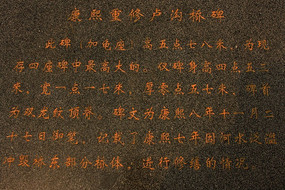 康熙重修卢沟桥碑
此碑（加龟座）高五点七八米，为现
存四座碑中最高大的。仅碑身高四点五二
米，宽一点一七米，厚零点五七米，碑首
为双龙纹顶脊。碑文为康熙八年十一月二
十七日御笔，记载了康熙七年因河水泛滥
冲毁桥东部分桥体，进行修缮的情况